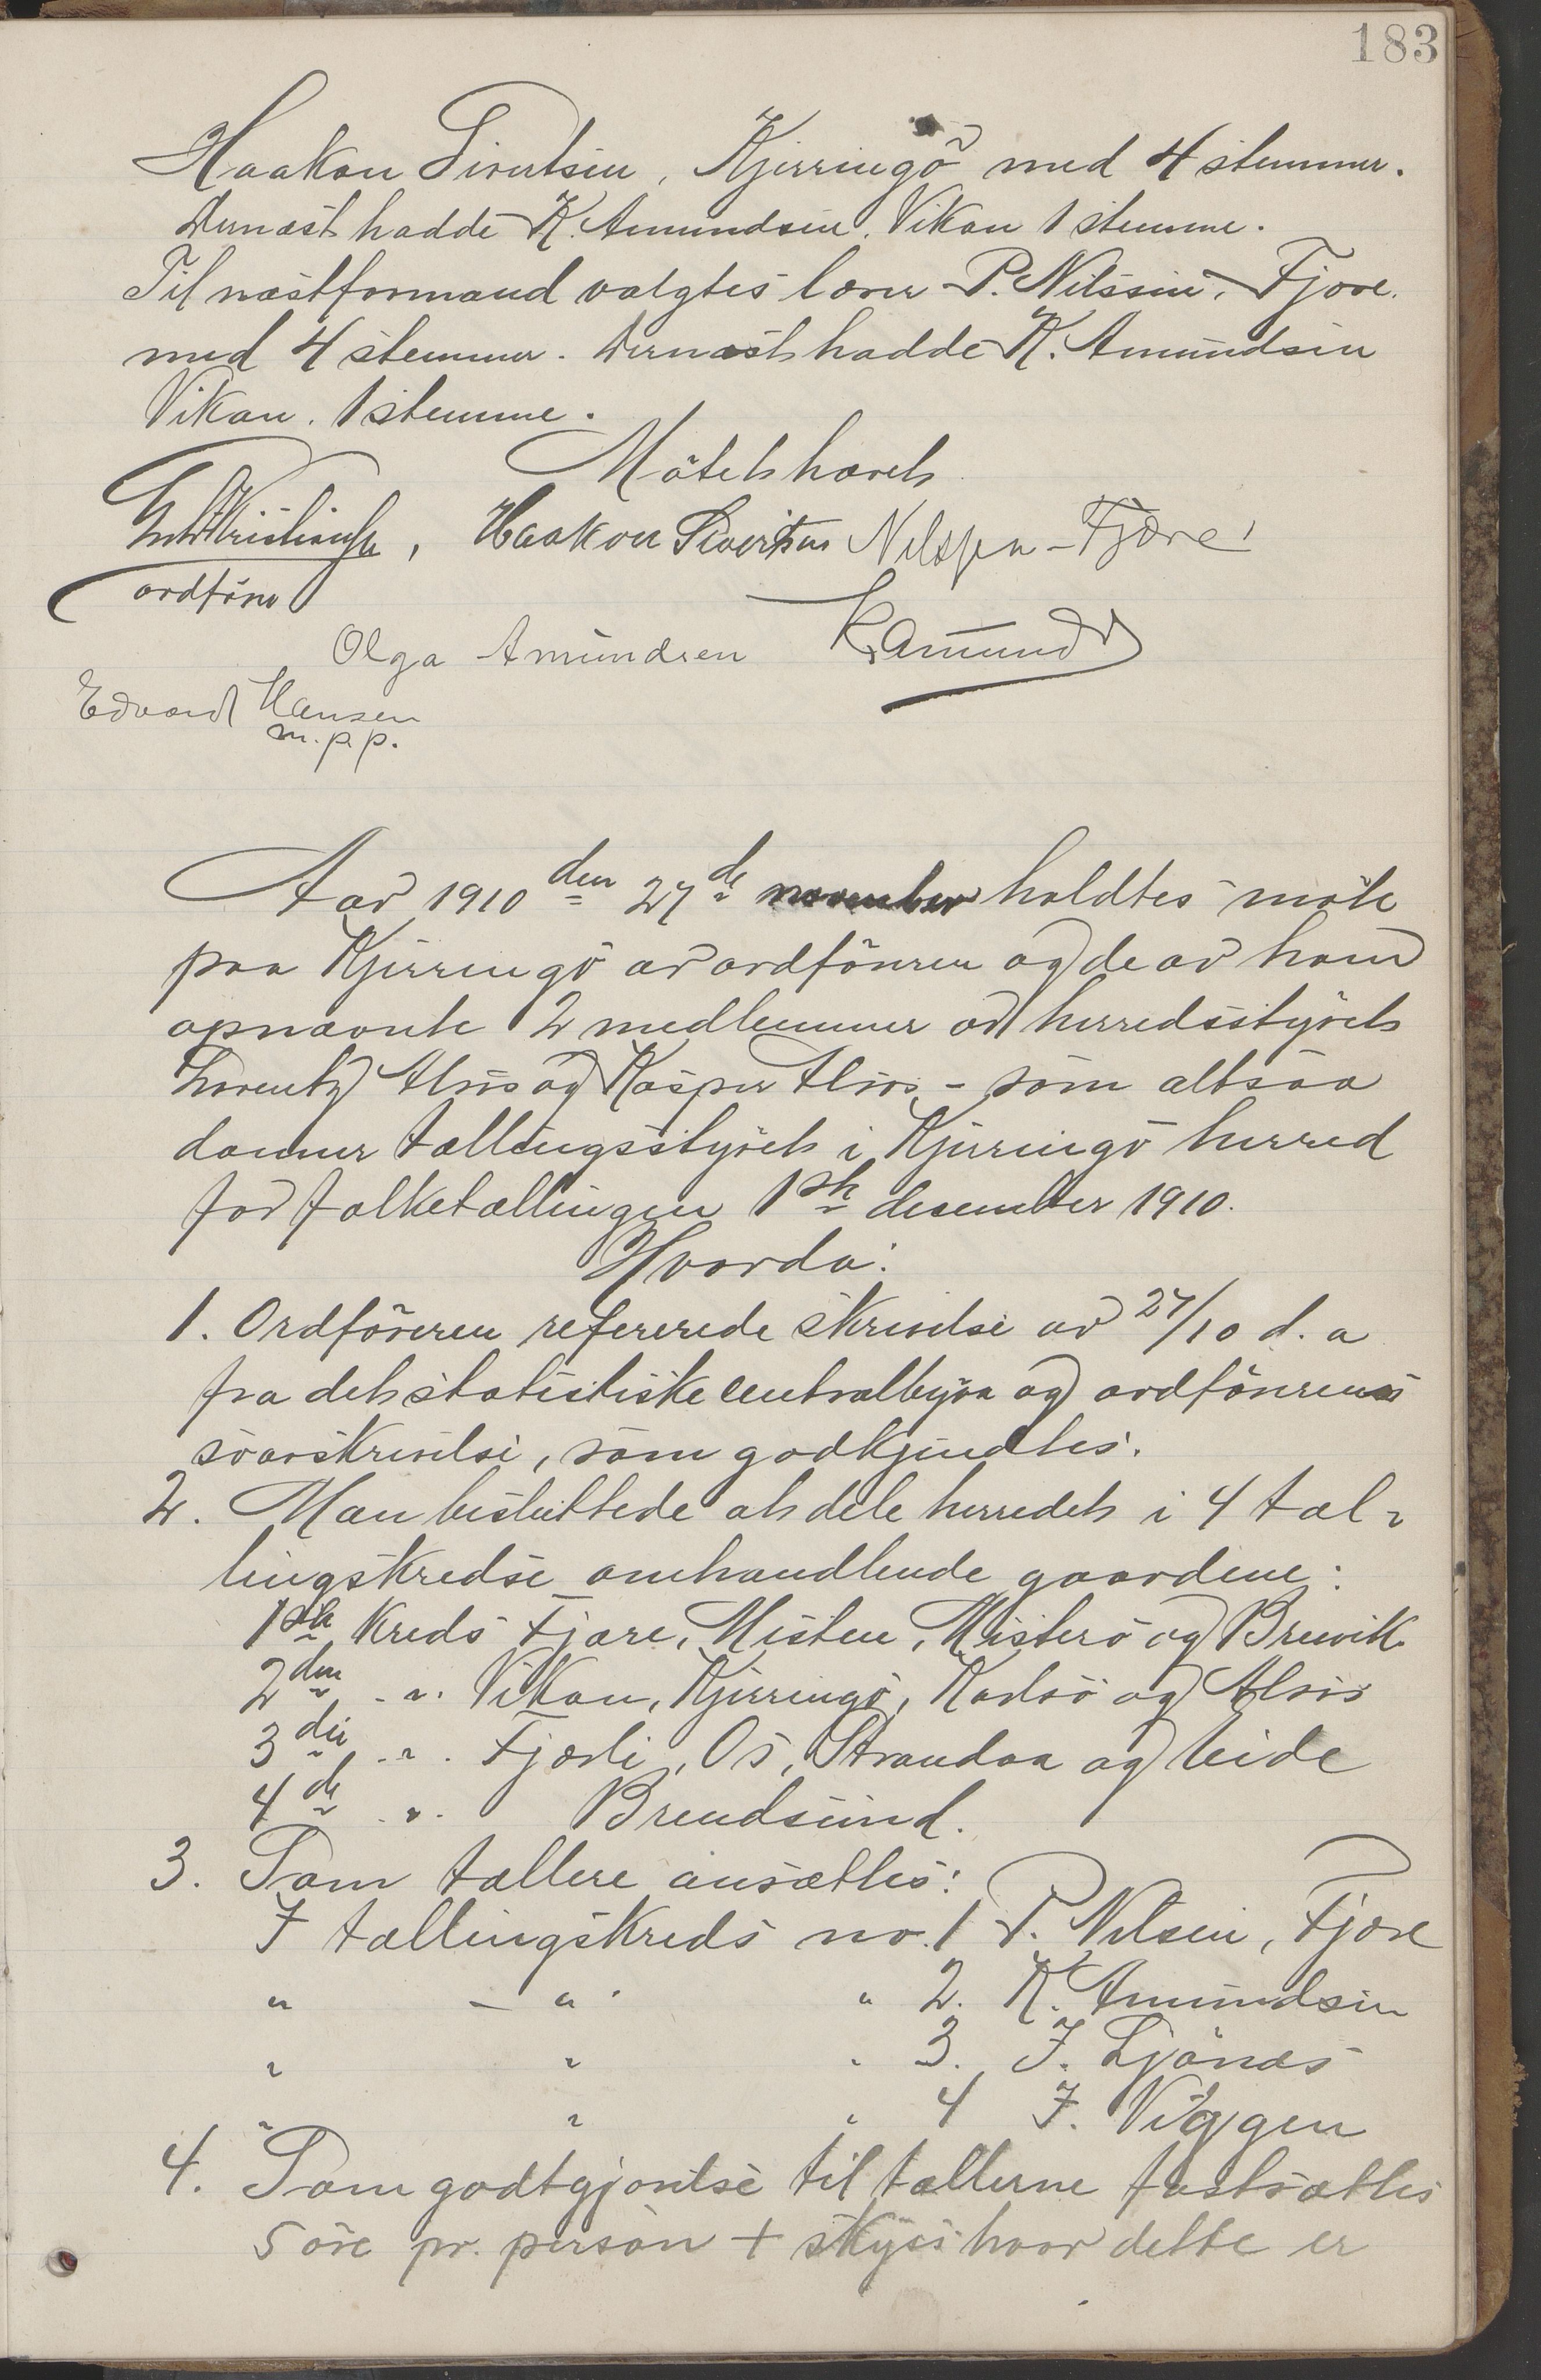 183
Haakon Sivertsen, Kjerringö med 4 stemmer.
Dernæst hadde K. Amundsen. Vikan 1 stemme.
Til næstformand valgtes lærer P. Nilssen, Fjære.
med 4 stemmer. Dernæst hadde K. Amundsen
Vikan. 1 stemme.
Mötet hævet
Kristiansen, Haakon Sivertsen Nilssen - Fjære
ordförer
Olga Amundsen K Amunds
Edvard Hansen
m.p.p.
Aar 1910 den 27de november holdtes möte
paa Kjerringö av ordföreren og de av ham
opnævnte 2 medlemmer av herredsstyret
Lorentz Alsos og Kasper Alsos - som altsaa
danner tællingsstyret i Kjerringö herred
for folketællingen 1ste desember 1910.
Hvorda:
1. Ordföreren refererede skrivelse av 27/10 d. a
fra det statistiske centralbyraa og ordförerens
svarskrivelse, som godkjendtes.
2. Man besluttede at dele herredet i 4 tæl-
lingskredse omhandlende gaardene:
1ste kreds Fjære, Misten, Misterö og Breivik
2den -"- Vikan, Kjerringö, Karlsö og Alsos
3die -"- Fjærli, Os, Strandaa og Leide
4de -"- Brendsund.
3. Som tællere ansættes:
I tællingskreds no. 1 P. Nilsen, Fjære
" - " " 2. K. Amundsen
" " " 3. J. Ljönes
" " " 4 J. Viggen
4. Som godtgjörelse til tællerne fastsættes
5 öre pr. person + skyss hvor dette er